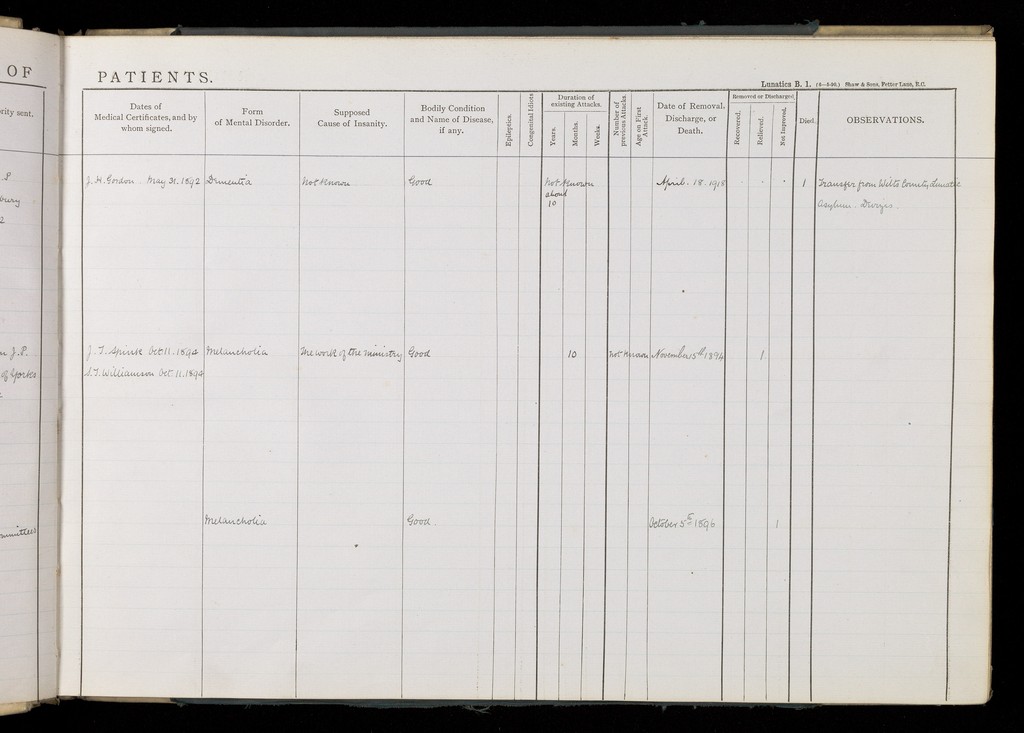 OF
PATIENTS.
Lunatics B. 1. (4—5-90.) Shaw & Sons, Fetter Lane, E.C.
rity sent.
Dates of
Medical Certificates, and by
whom signed.
Form
of Mental Disorder.
Supposed
Cause of Insanity.
Bodily Condition
and Name of Disease,
if any.
Epileptics.
Congenital Idiots
Duration of
existing Attacks.
Years.
Months.
Weeks.
Number of
previous Attacks.
Age on First
Attack.
Date of Removal,
Discharge, or
Death.
Removed or Discharged.
Recovered.
Relieved.
Not Improved.
Died.
OBSERVATIONS.
J. H. Gordon May 31. 1892 Dementia Not Known Good Not Known April. 18. 1918 1 Transfer from Wilts County Lunatic
about
10
Asylum. Devizes
bury
2
J. T. Spink Oct. 11. 1894 Melancholia The work of the ministry Good 10 Not Known November 15th 1894 1
J. P.
S. T. Williamson Oct. 11. 1894
of Yorks
Melancholia Good October 5th 1896 1
mmittee)